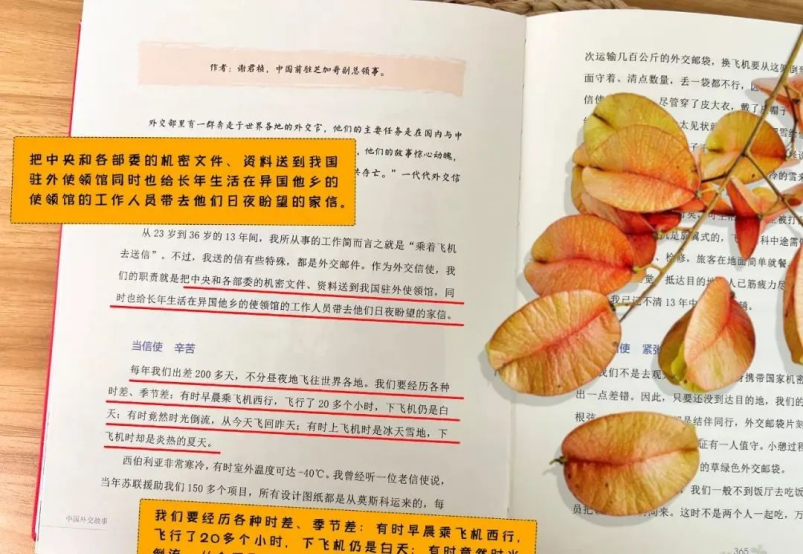 作者：谢君桢，中国前驻芝加哥副总领事。
外交部里有一群奔走于世界各地的外交官，他们的主要任务是在国内与中
他们的故事惊心动魄，
共存亡。”一代代外交信
把中央和各部委的机密文件、资料送到我国
驻外使领馆同时也给长年生活在异国他乡的
使领馆的工作人员带去他们日夜盼望的家信。
从 23 岁到 36 岁的 13 年间，我所从事的工作简而言之就是“乘着飞机
去送信”。不过，我送的信有些特殊，都是外交邮件。作为外交信使，我
们的职责就是把中央和各部委的机密文件、资料送到我国驻外使领馆，同
时也给长年生活在异国他乡的使领馆的工作人员带去他们日夜盼望的家信。
当信使 辛苦
每年我们出差 200 多天，不分昼夜地飞往世界各地。我们要经历各种
时差、季节差：有时早晨乘飞机西行，飞行了 20 多个小时，下飞机仍是白
天；有时竟然时光倒流，从今天飞回昨天；有时上飞机时是冰天雪地，下
飞机时却是炎热的夏天。
西伯利亚非常寒冷，有时室外温度可达 -40℃。我曾经听一位老信使说，
当年苏联援助我们 150 多个项目，所有设计图纸都是从莫斯科运来的，每
中国外交故事
我们要经历各种时差、季节差：有时早晨乘飞机西行，
飞行了20多个小时，下飞机仍是白天；有时竟然时光
次运输几百公斤的外交邮袋，换飞机要从这
面守着、清点数量，丢一袋都不行，因
信使
尽管穿了皮大衣，戴了
太见状
被打
飞
科中途需
检修，旅客在地面简单就餐
抵达目的
人已筋疲力
我已记不清 13 年中
使 紧张
我们不是去观
携带国家机密
出一点差错。因此，只要还没到达目的地，我们的
根弦
是结伴同行，外交邮袋片刻
证有一人值守。小憩过程
的草绿色外交邮袋。
我们一般不到饭厅去吃饭
来。这时不是两个人一起吃，万
365